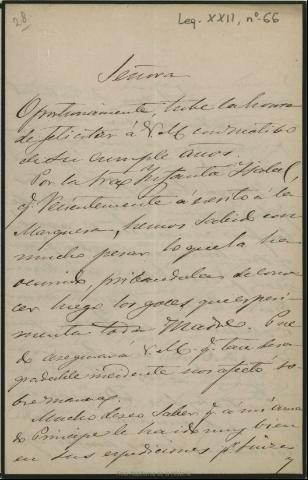 28
Leg. XXII, nº 66
Señora
Oportunamente tube la honra
de felicitar á V.M. con motivo
de su cumple años.
Por la Infanta Isabel,
q. recientemente á escrito á la
Marquesa, hemos sabido con
mucho pesar lo que la ha
ocurrido, pribandola de cono
cer luego los goces que esperi
menta toda Madre. Pue
do asegurar a V.M. q. tan desa
gradable incidente nos afectó so
bremanera.
Mucho deseo saber q. á mi amado
Principe le ha ido muy bien
en sus espediciones pr. Suiza
y